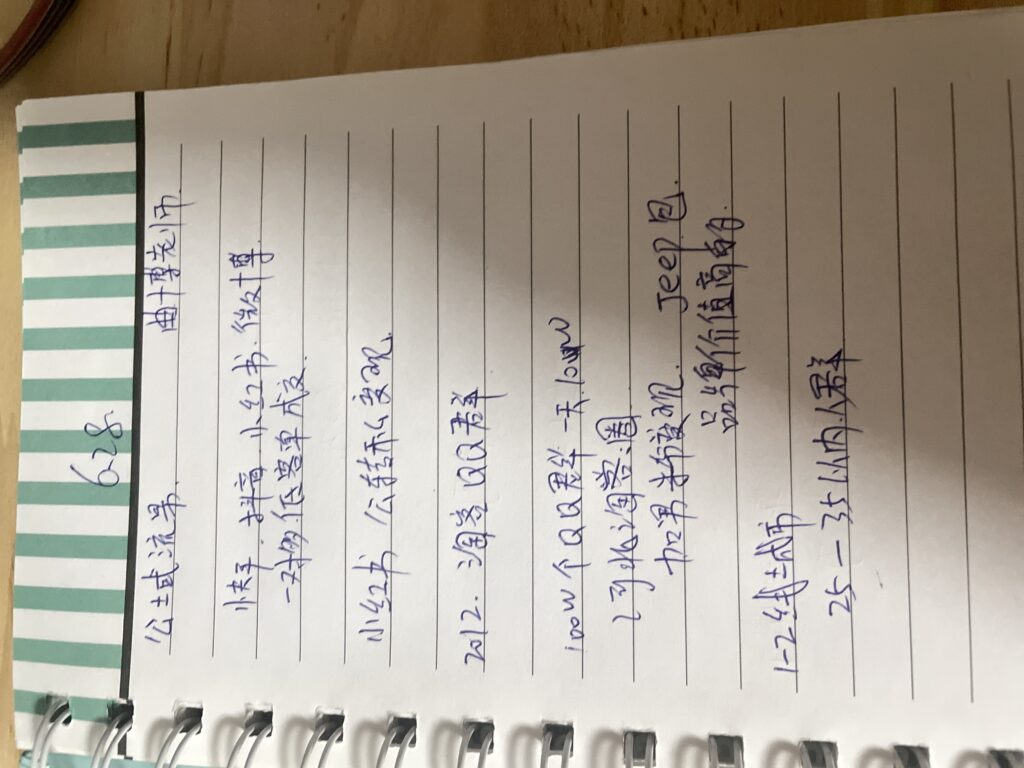 6.28.
公域流量. 曲博老师.
快手. 抖音 小红书. 微博.
一对多.低客单成交.
小红书 公转私变现.
2012. 淘客QQ群
100W个QQ群 一天.100W
淘客圈
加男 变现. Jeep包.
品牌价值高的.
1-2线城市
25—35以内人群